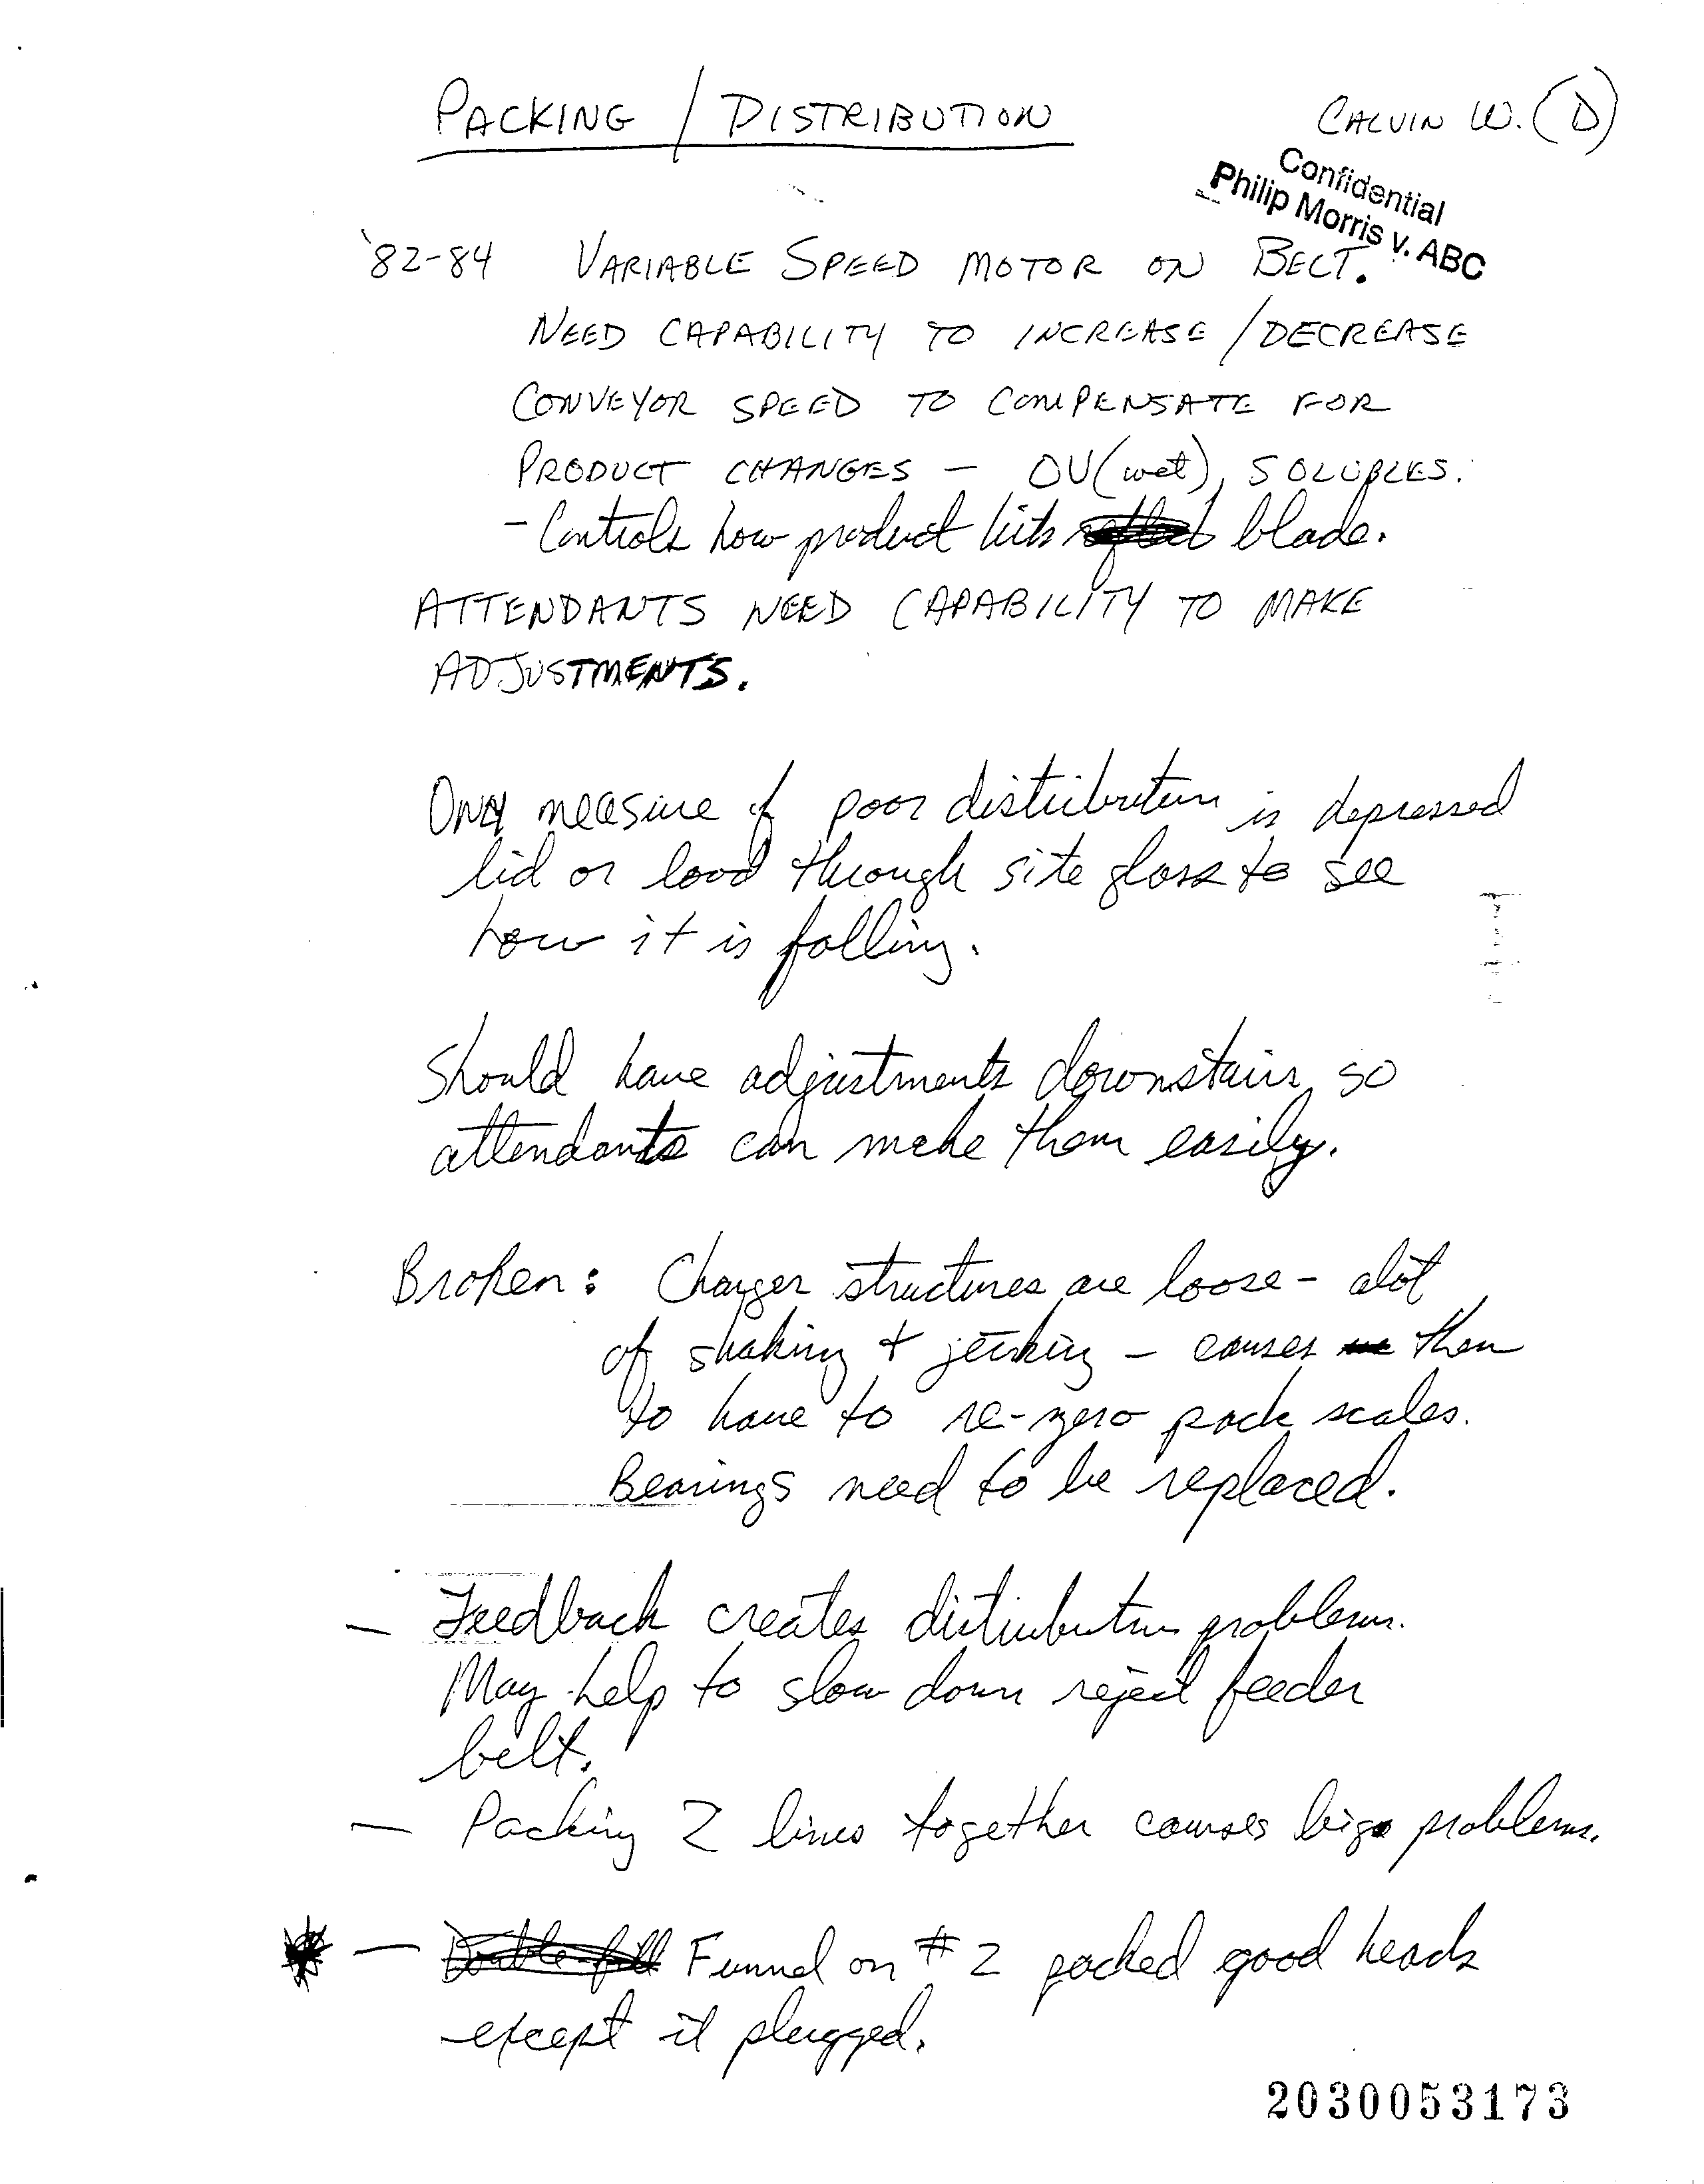 PACKING / DISTRIBUTION
CALVIN W. (D)
Confidential
Philip Morris v. ABC
'82-84 VARIABLE SPEED MOTOR ON BELT.
NEED CAPABILITY TO INCREASE / DECREASE
CONVEYOR SPEED TO COMPENSATE FOR
PRODUCT CHANGES - OV (wet), SOLUBLES.
- Controls how product hits blade.
ATTENDANTS NEED CAPABILITY TO MAKE
ADJUSTMENTS.
Only measure of poor distribution is depressed
lid or lood through site glass to see
how it is falling.
Should have adjustments downstairs, so
attendants can make them easily.
Broken: Charger structures are loose - alot
of shaking + jerking - causes them
to have to re-zero pack scales.
Bearings need to be replaced.
- Feedback creates distribution problems.
May help to slow down reject feeder
belt.
- Packing 2 lines together causes big problems.
- Funnel on # 2 packed good heads
except it plugged.
2030053173